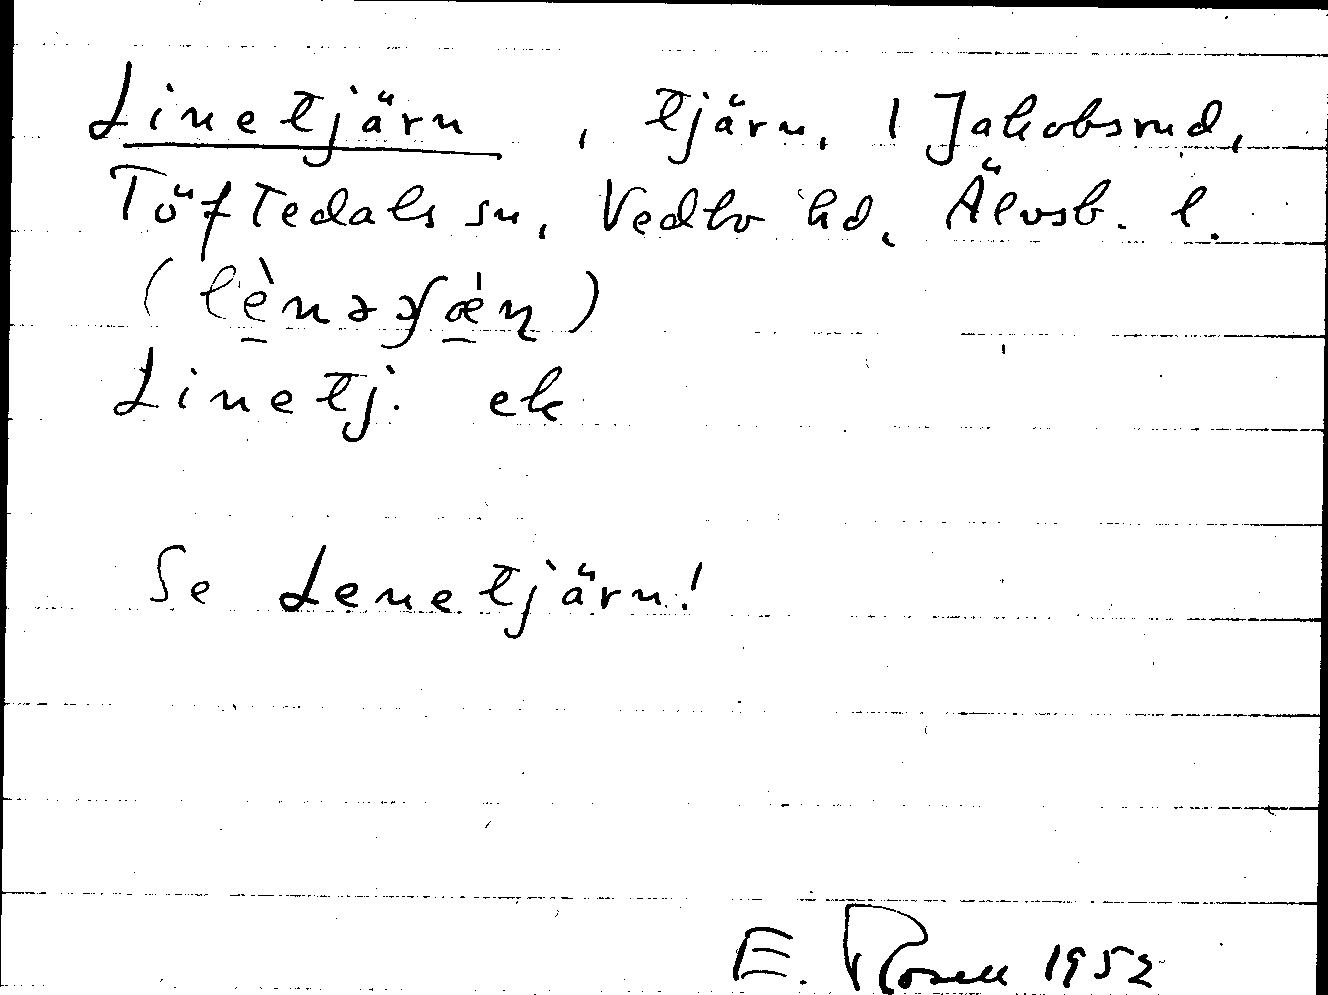 Linetjärn, tjärn, 1 Jakobsrud,
Töftedals sn, Vedbo hd, Älvsb. l.
Linetj. ek
Se Lenetjärn!
E. Rosell 1952